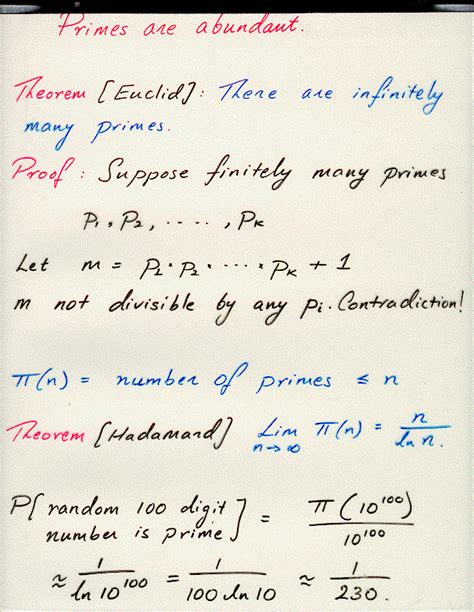 Primes are abundant.
Theorem [Euclid]: There are infinitely
many primes.
Proof: Suppose finitely many primes
P₁, P₂, ....., Pₖ
Let m = P₁·P₂·····Pₖ + 1
m not divisible by any pᵢ. Contradiction!
π(n) = number of primes ≤ n
Theorem [Hadamand] Lim_{n→∞} π(n) = n/ln n.
P[random 100 digit number is prime] = π(10¹⁰⁰)/10¹⁰⁰
≈ 1/ln 10¹⁰⁰ = 1/(100 ln 10) ≈ 1/230.